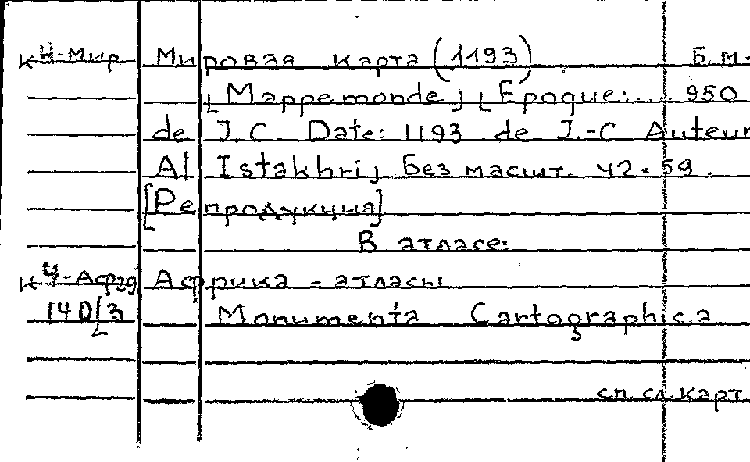 К Ч-Мир Мировая карта (1193) Б.м.
[Mappemonde] [Epoque:... 950
de J.C. Date: 1193 de J.-C Auteur
Al Istakhri] Без масшт. 42×59.
[Репродукция]
В атласе:
Африка - атласы
140/3 Monumenta Cartographica
сп. сл. карт